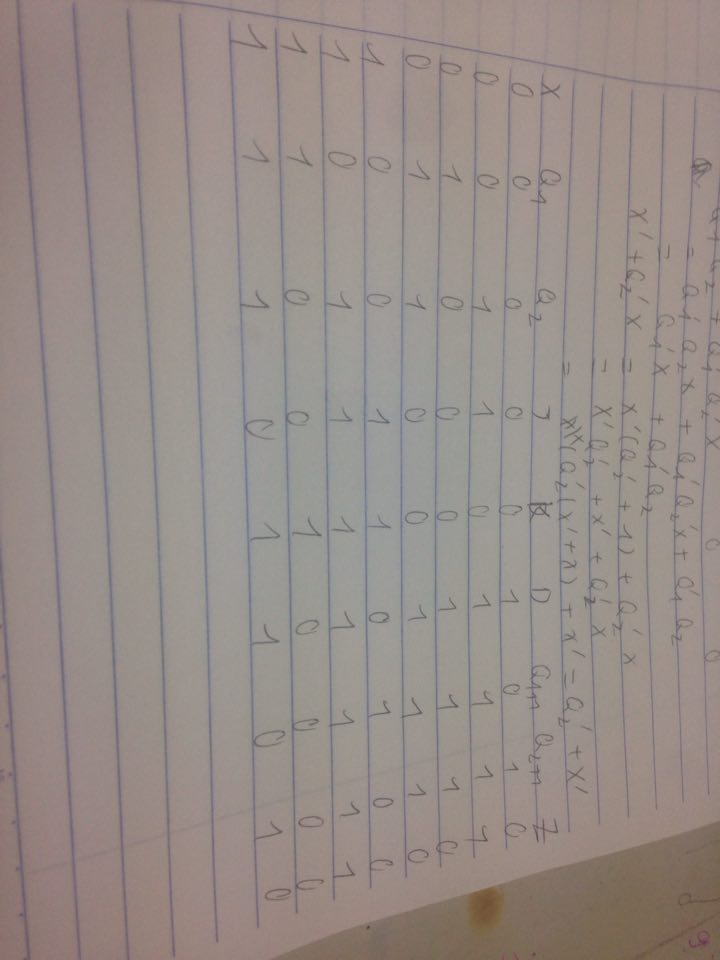 Q1' Q2 + Q1' Q2' X 0 0
= Q1' Q2 X + Q1' Q2' X + Q1' Q2
= Q1' X + Q1' Q2
X' + Q2' X = X'(Q2' + 1) + Q2' X
= X' Q2' + X' + Q2' X
= Q2'(X' + X) + X' = Q2' + X'
X Q1 Q2 J K D Q1+1 Q2+1 Z
0 0 0 0 0 1 0 1 0
0 0 1 1 0 1 1 1 1
0 1 0 0 0 1 1 1 0
0 1 1 0 0 1 1 1 0
1 0 0 1 1 0 1 0 0
1 0 1 1 1 1 1 1 1
1 1 0 0 1 0 0 0 0
1 1 1 0 1 1 0 1 0